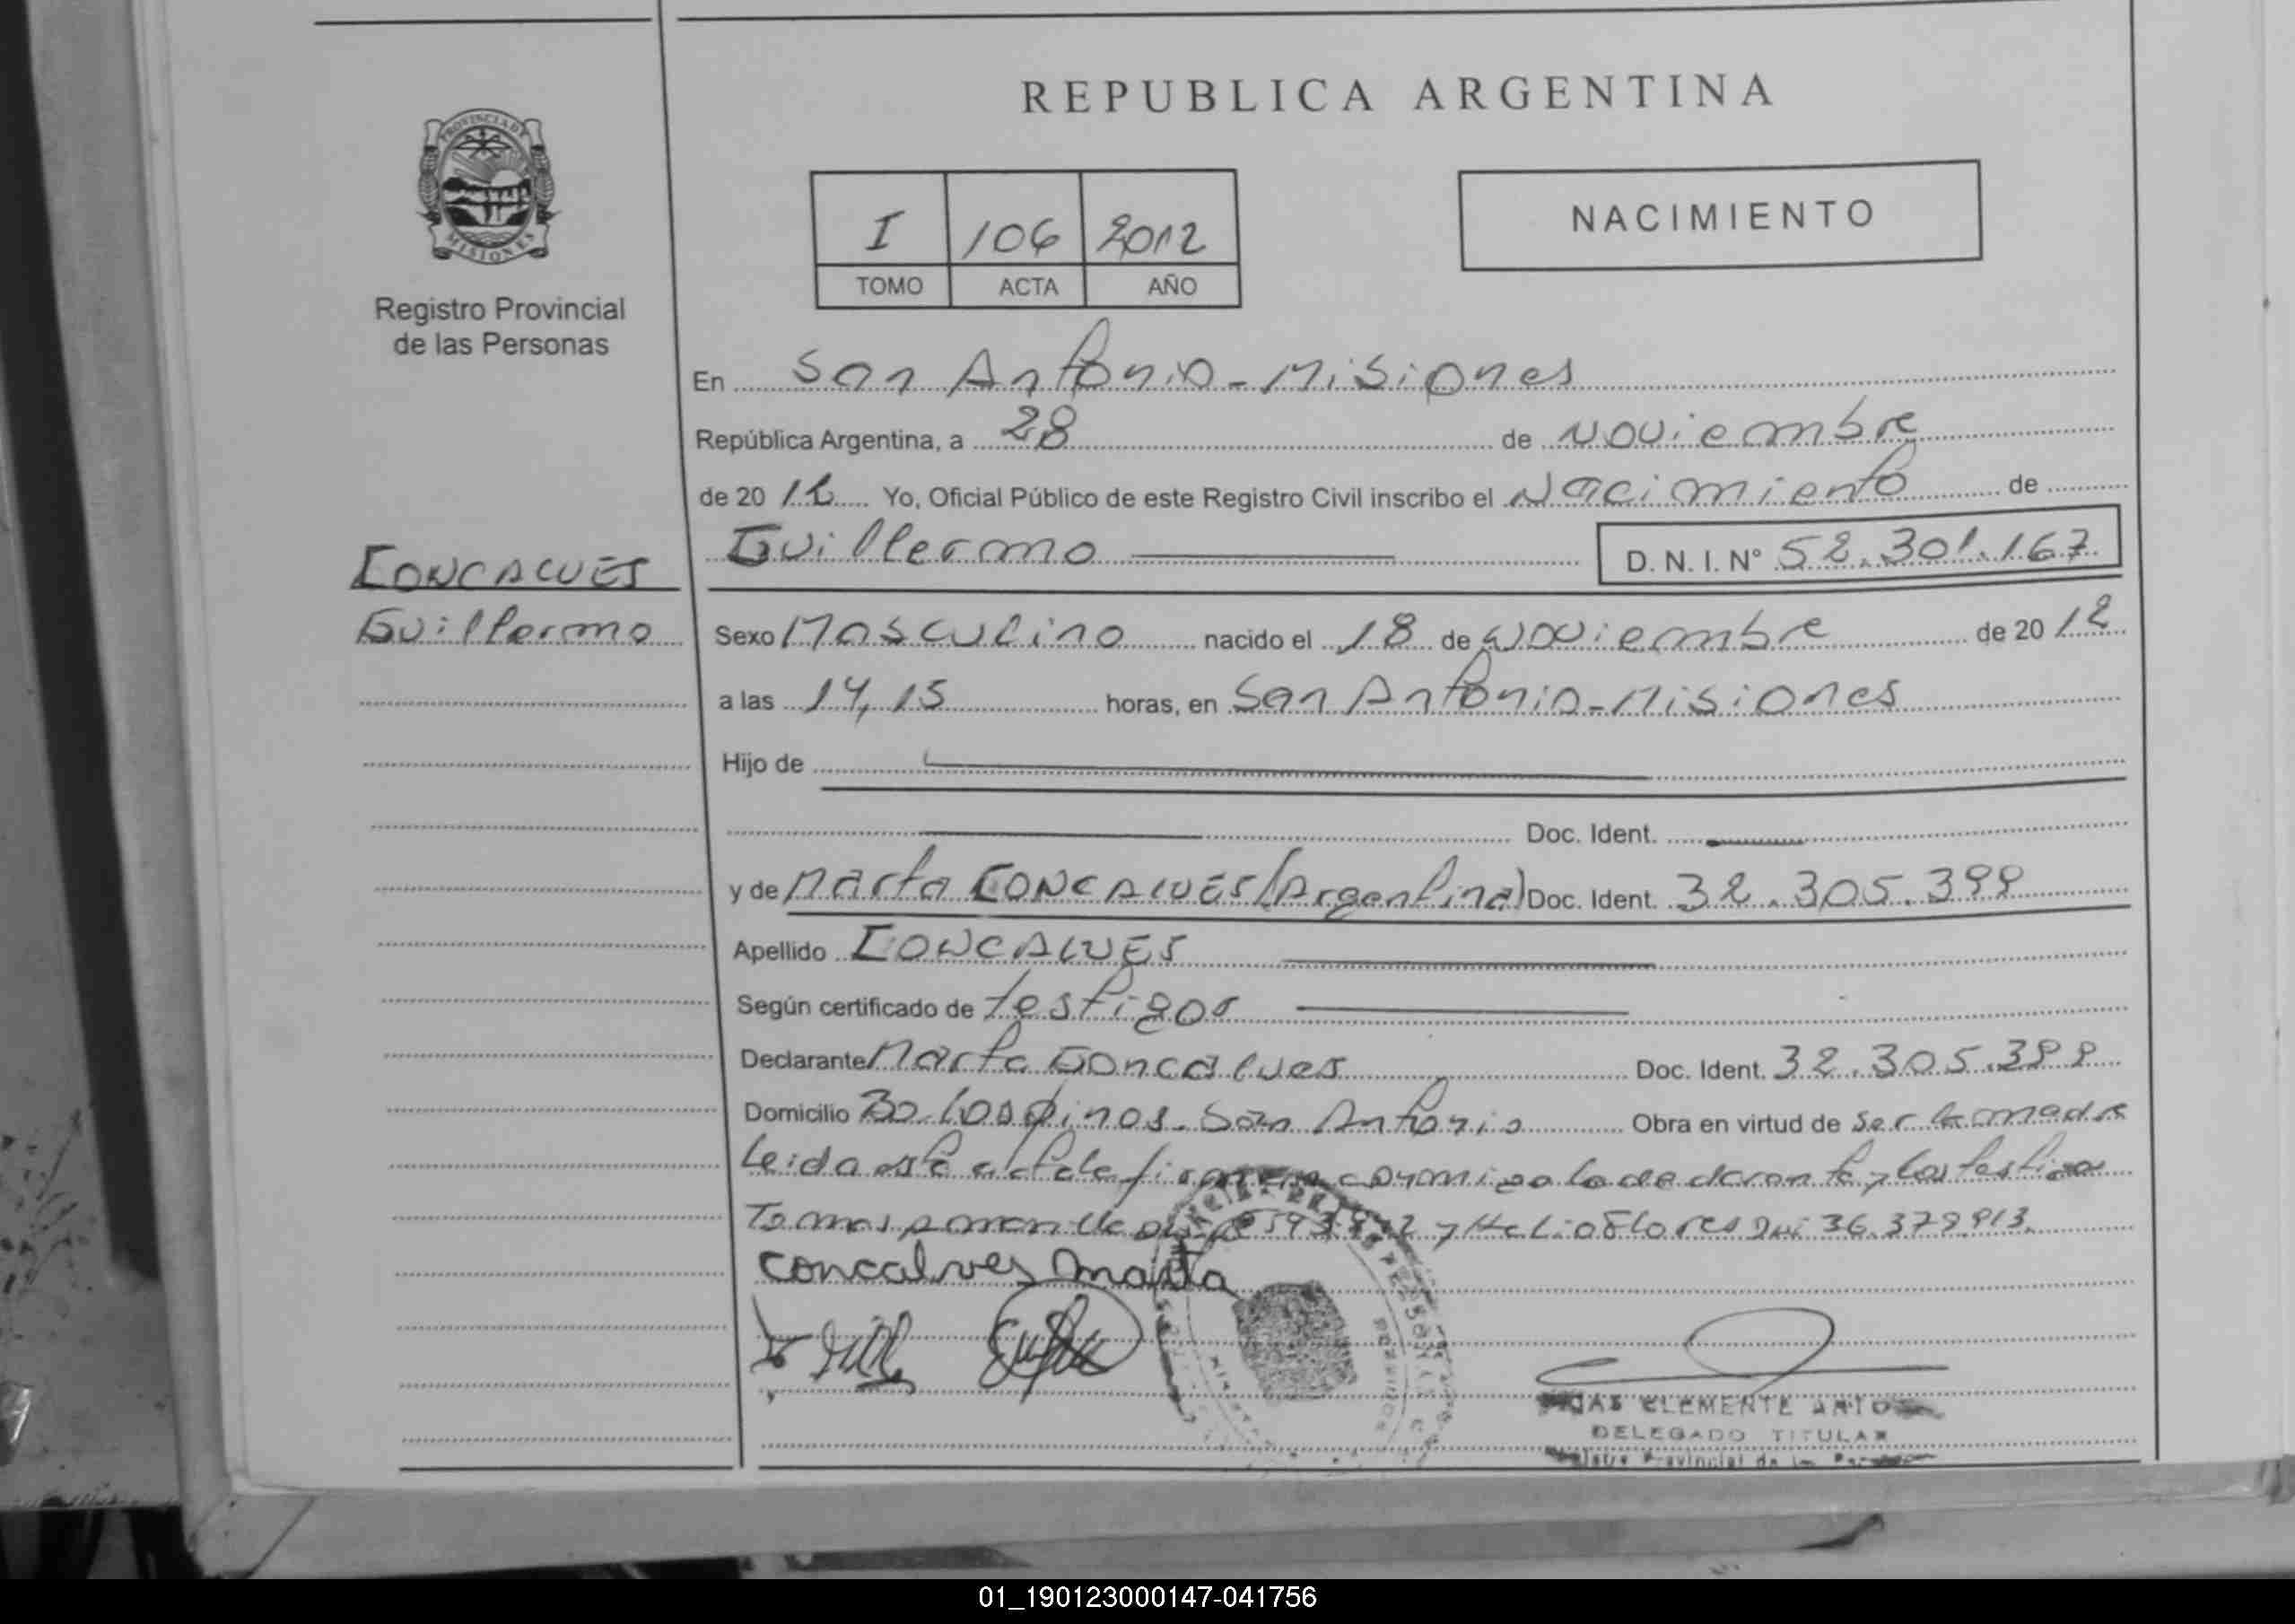 REPUBLICA ARGENTINA
PROVINCIA DE
MISIONES
Registro Provincial
de las Personas
I 106 2012
TOMO ACTA AÑO
NACIMIENTO
En San Antonio - Misiones
República Argentina, a 28 de Noviembre
de 20 12 Yo, Oficial Público de este Registro Civil inscribo el Nacimiento de
Guillermo D. N. I. N° 52.301.167
GONCALVES
Guillermo
Sexo Masculino nacido el 18 de Noviembre de 20 12
a las 14,15 horas, en San Antonio - Misiones
Hijo de
Doc. Ident.
y de Marta GONCALVES (Argentina) Doc. Ident. 32.305.399
Apellido GONCALVES
Según certificado de testigos
Declarante Marta Goncalves Doc. Ident. 32.305.399
Domicilio Bo. Los pinos - San Antonio Obra en virtud de ser la madre
Leida esta acta la firma conmigo la declarante y los testigos
Tomas y Helio Flores DNI 36.379.913.
Concalves Marta
CLEMENTE
DELEGADO TITULAR
Provincial de
01_190123000147-041756